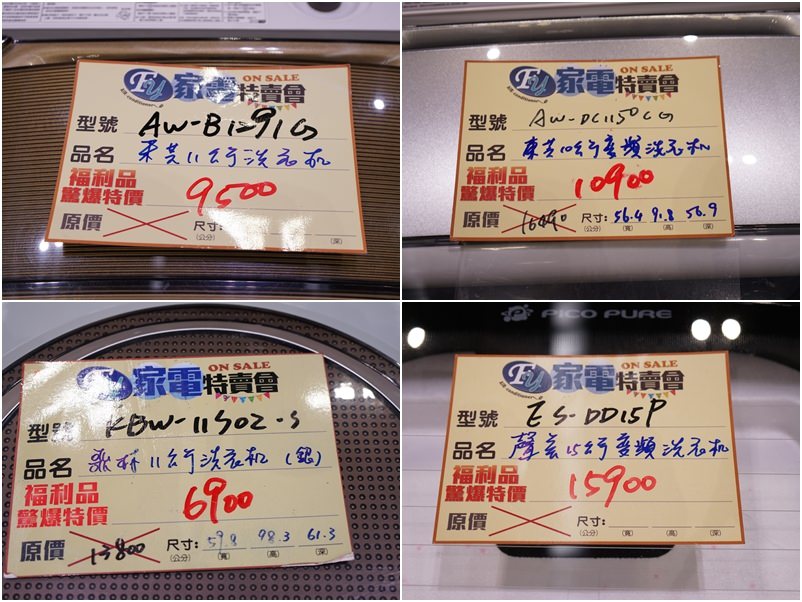 FU 家電 ON SALE 特賣會
Air conditioner
型號 AW-B1291G
品名 東芝11公斤洗衣机
福利品
驚爆特價 9500
原價 尺寸:
(公分) (寬) (高) (深)
FU 家電 ON SALE 特賣會
Air conditioner
型號 AW-DC1150CG
品名 東芝10公斤變頻洗衣机
福利品
驚爆特價 10900
原價 16490 尺寸: 56.4 91.8 56.9
(公分) (寬) (高) (深)
FU 家電 ON SALE 特賣會
型號 KBW-11S02-S
品名 歌林11公斤洗衣机(銀)
福利品
驚爆特價 6900
原價 13800 尺寸: 59.8 98.3 61.3
(公分) (寬) (高) (深)
PICO PURE
FU 家電 ON SALE 特賣會
Air conditioner
型號 ES-DD15P
品名 聲寶15公斤變頻洗衣机
福利品
驚爆特價 15900
原價 尺寸:
(公分) (寬) (高) (深)